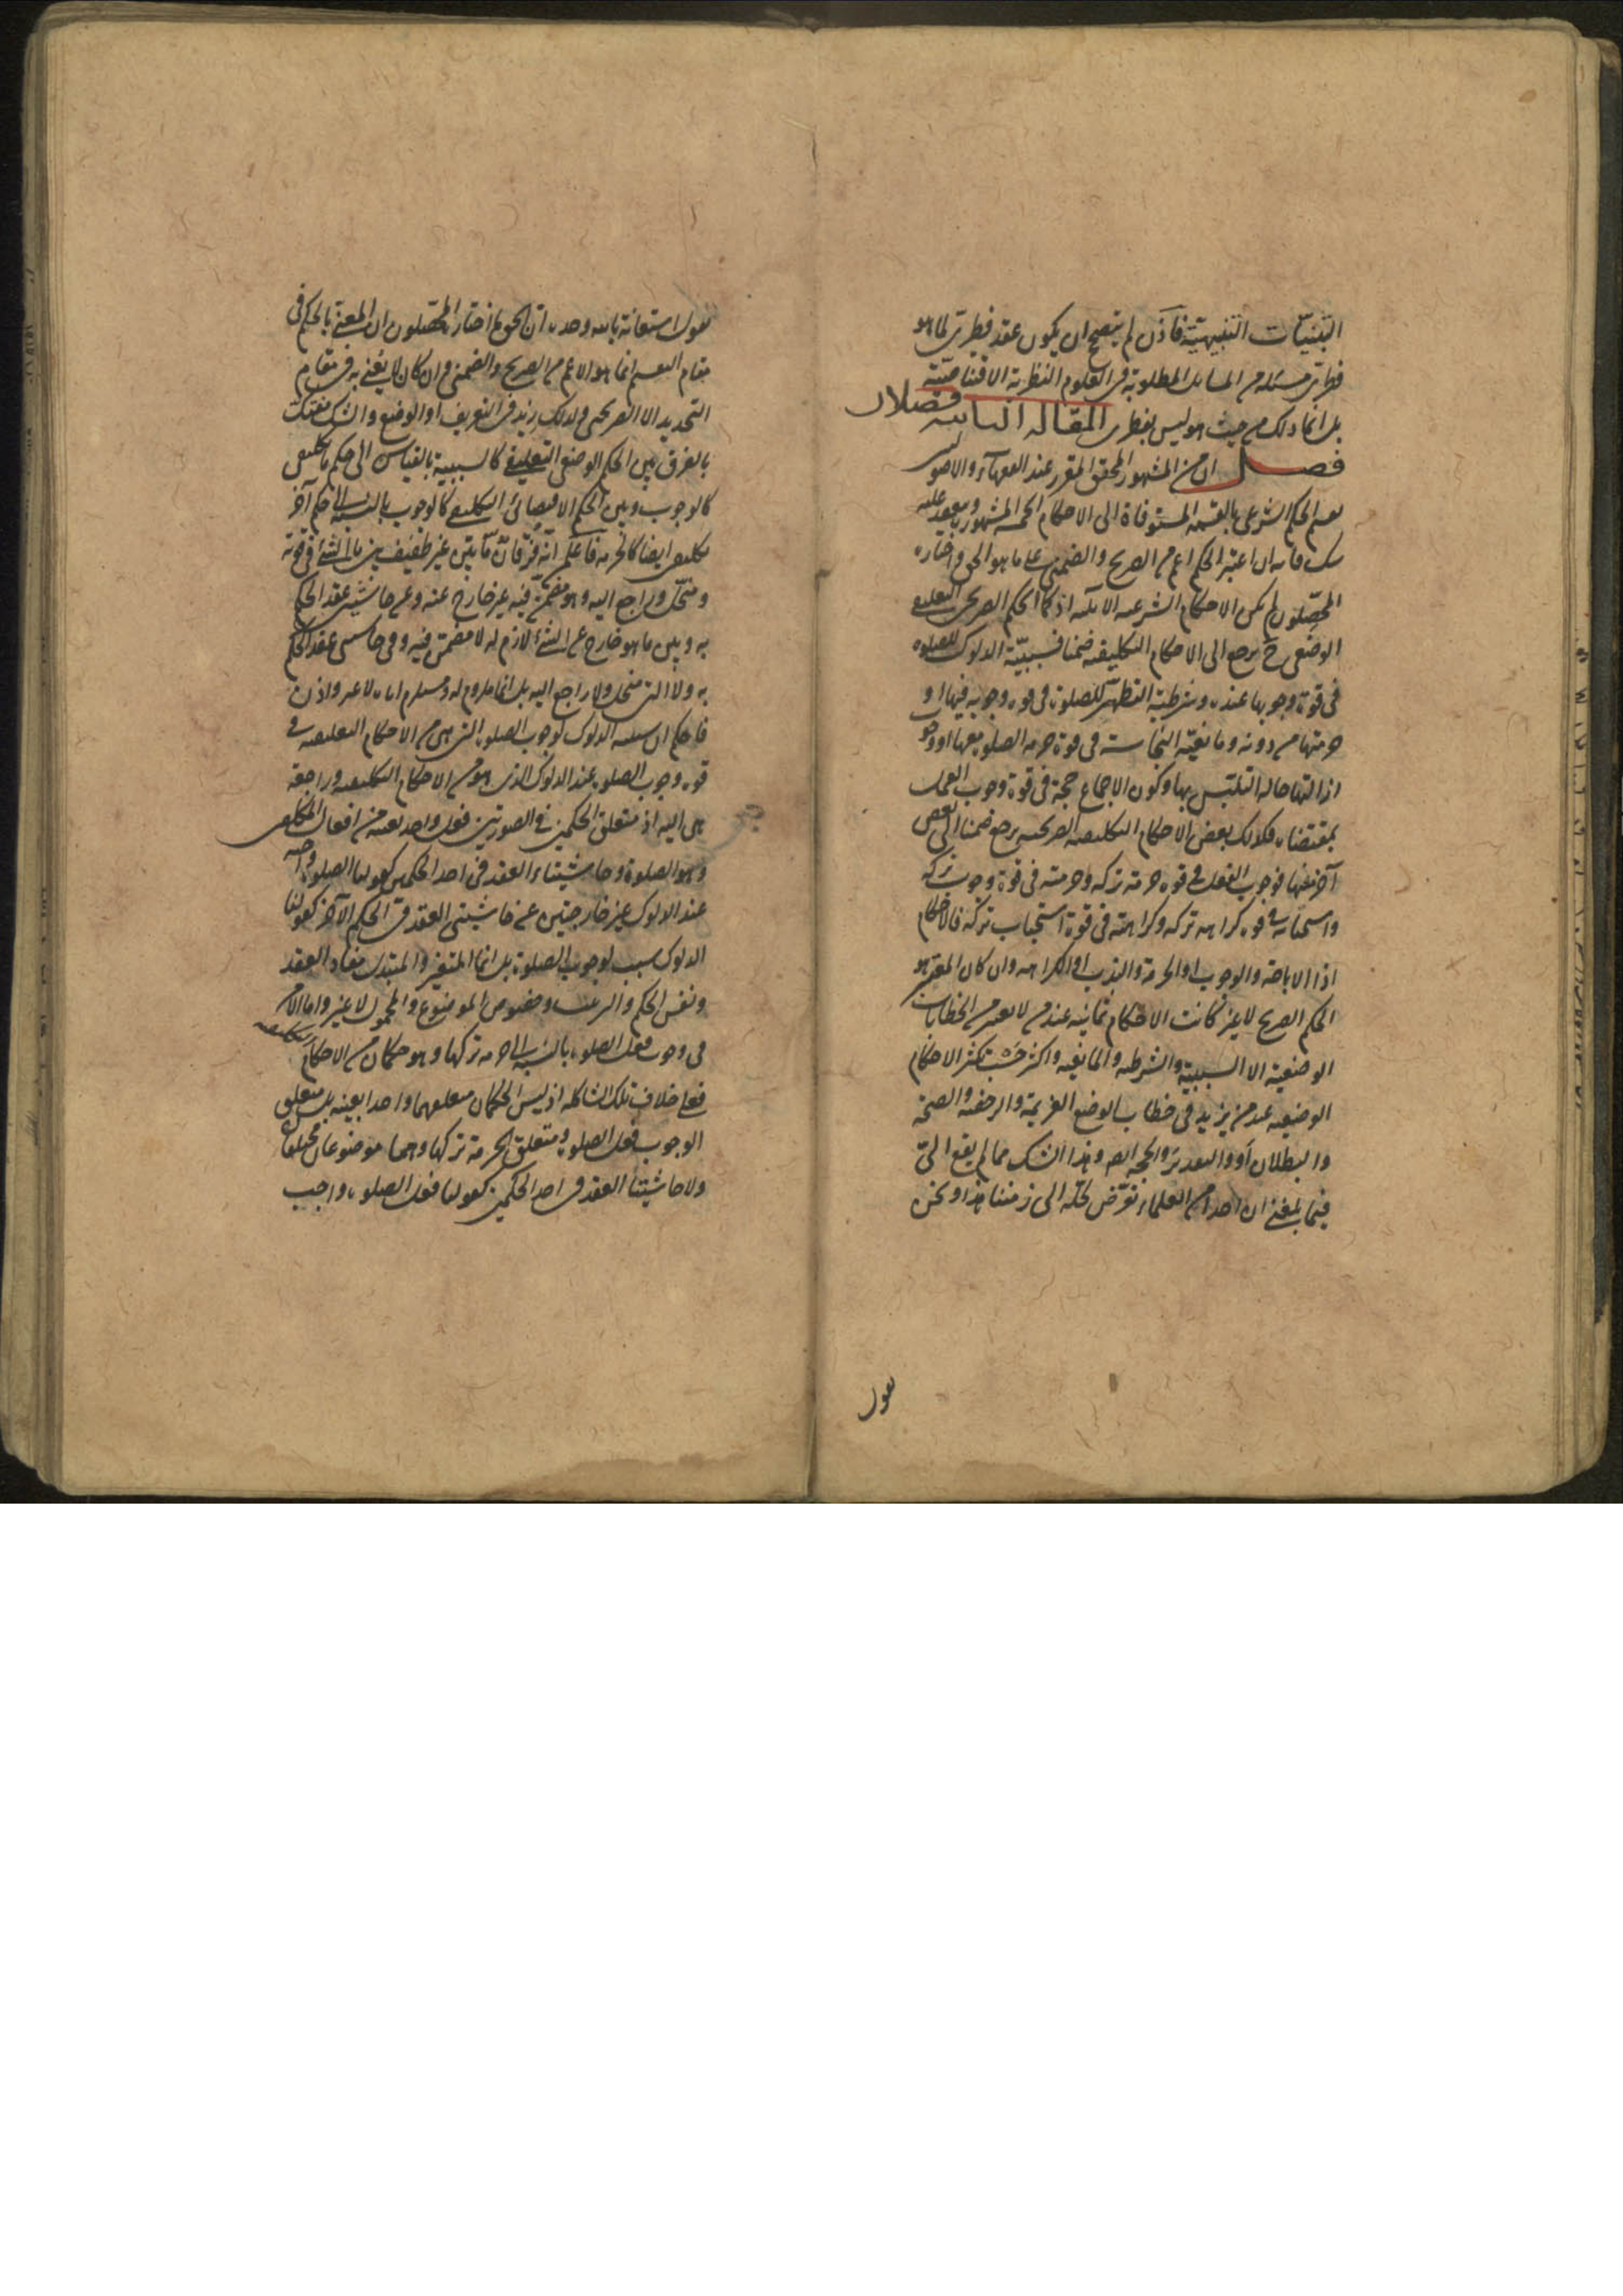 التبنيات التنبيهيّة فاذن لم يتصحح ان يكون عقد فطرىّ لما هو
فطرىّ مسئلة من المسايل المطلوبة فى العلوم النظرية الاقتناصيّة
بل انما ذلك من حيث هو ليس بفطرى المقالة الثانية فصلان
فصل ان من المشهور المحقق المقرر عند الفقهاء والاصوليين
تقسيم الحكم الشرعى بالقسمة المستوفاة الى الاحكام الخمسة المشهورة ويعقد عليه
شك فانه ان اعتبر الحكم اعم من الصريح والضمنى على ما هو الحق واختاره
المحصّلون لم يكن الاحكام الشرعية الا ثلثة اذ كما الحكم الصريحى التعليقى
الوضعى يرجع الى الاحكام التكليفية ضمنا فسببيّة الدلوك للصلوة
فى قوة وجوبها عنده وشرطية التطهّر للصلوة فى قوة وجوبه فيها او
حرمتها من دونه ومانعيّة النجاسة فى قوة حرمة الصلوة معها او وجوب
ازالتها حالة التلبّس بها وكون الاجماع حجة فى قوة وجوب العمل
بمقتضاه فكذلك بعض الاحكام التكليفية الصريحية يرجع ضمنا الى بعض
آخر منها فوجوب الفعل فى قوة حرمة تركه وحرمته فى قوة وجوب تركه
واستحبابه فى قوة كراهة تركه وكراهته فى قوة استحباب تركه فالاحكام
اذا الاباحة والوجوب او الحرمة والندب او الكراهة وان كان المعتبر هو
الحكم الصريح لا غير كانت الاحكام ثمانية عند من لا يعتبر من الخطابات
الوضعية الا السببية والشرطية والمانعية واكثر حسب تكثر الاحكام
الوضعية عند من يزيد فى خطاب الوضع العزيمة والرخصة والصحة
والبطلان او والتقدير والحجة ايضا وهذا الشك مما لم يقع الىّ
فيما بلغنى ان احدا من العلماء تعرّض لحلّه الى زمننا هذا ونحن
نقول
نقول استعانة بالله وحده ان الحق ما اختاره المحصّلون ان المعنى بالحكم فى
مقام التقسيم انما هو الاعم من الصريح والضمنى وان كان لا يعنى به فى مقام
التحديد الا الصريحى ولذلك زيد فى التعريف او الوضع والشك منفك
بالفرق بين الحكم الوضعى التعليقى كالسببية بالقياس الى حكم تكليفى
كالوجوب وبين الحكم الاقتضائى التكليفى كالوجوب بالنسبة الى حكم آخر
تكليفى ايضا كالحرمة فاعلم انّه فرقان مّا بيّن غير طفيف بين ما الشئ فى قوته
ومنحلّ وراجع اليه وهو مضمّن فيه غير خارج عنه وعن حاشيتى عقد الحكم
به وبين ما هو خارج عن الشئ لازم له لا مضمّن فيه وفى حاشيتى عقد الحكم
به ولا الشئ منحل ولا راجع اليه بل انما ملزوم له ومستلزم اياه لا غير واذن
فاحكم ان سببية الدلوك لوجوب الصلوة التى هى من الاحكام التعليقية فى
قوة وجوب الصلوة عند الدلوك الذى هو من الاحكام التكليفية وراجعة
هى اليه اذ متعلق الحكمين فى الصورتين فعل واحد بعينه من افعال المكلفين
وهو الصلوة وحاشيتاه العقد فى احد الحكمين كقولنا الصلوة واجبة
عند الدلوك غير خارجتين عن حاشيتى العقد فى الحكم الآخر كقولنا
الدلوك سبب لوجوب الصلوة بل انما المتغير والمتبدل مفاد العقد
ونفس الحكم والترتيب وخصوص الموضوع والمحمول لا غير واما الامر
فى وجوب فعل الصلوة بالنسبة الى حرمة تركها وهو حكمان من الاحكام التكليفية
فعلى خلاف تلك الشاكلة اذ ليس الحكمان متعلقهما واحدا بعينه بل متعلق
الوجوب فعل الصلوة ومتعلق الحرمة تركها وهما موضوعان مختلفان
ولا حاشيتا العقد فى احد الحكمين كقولنا فعل الصلوة واجب